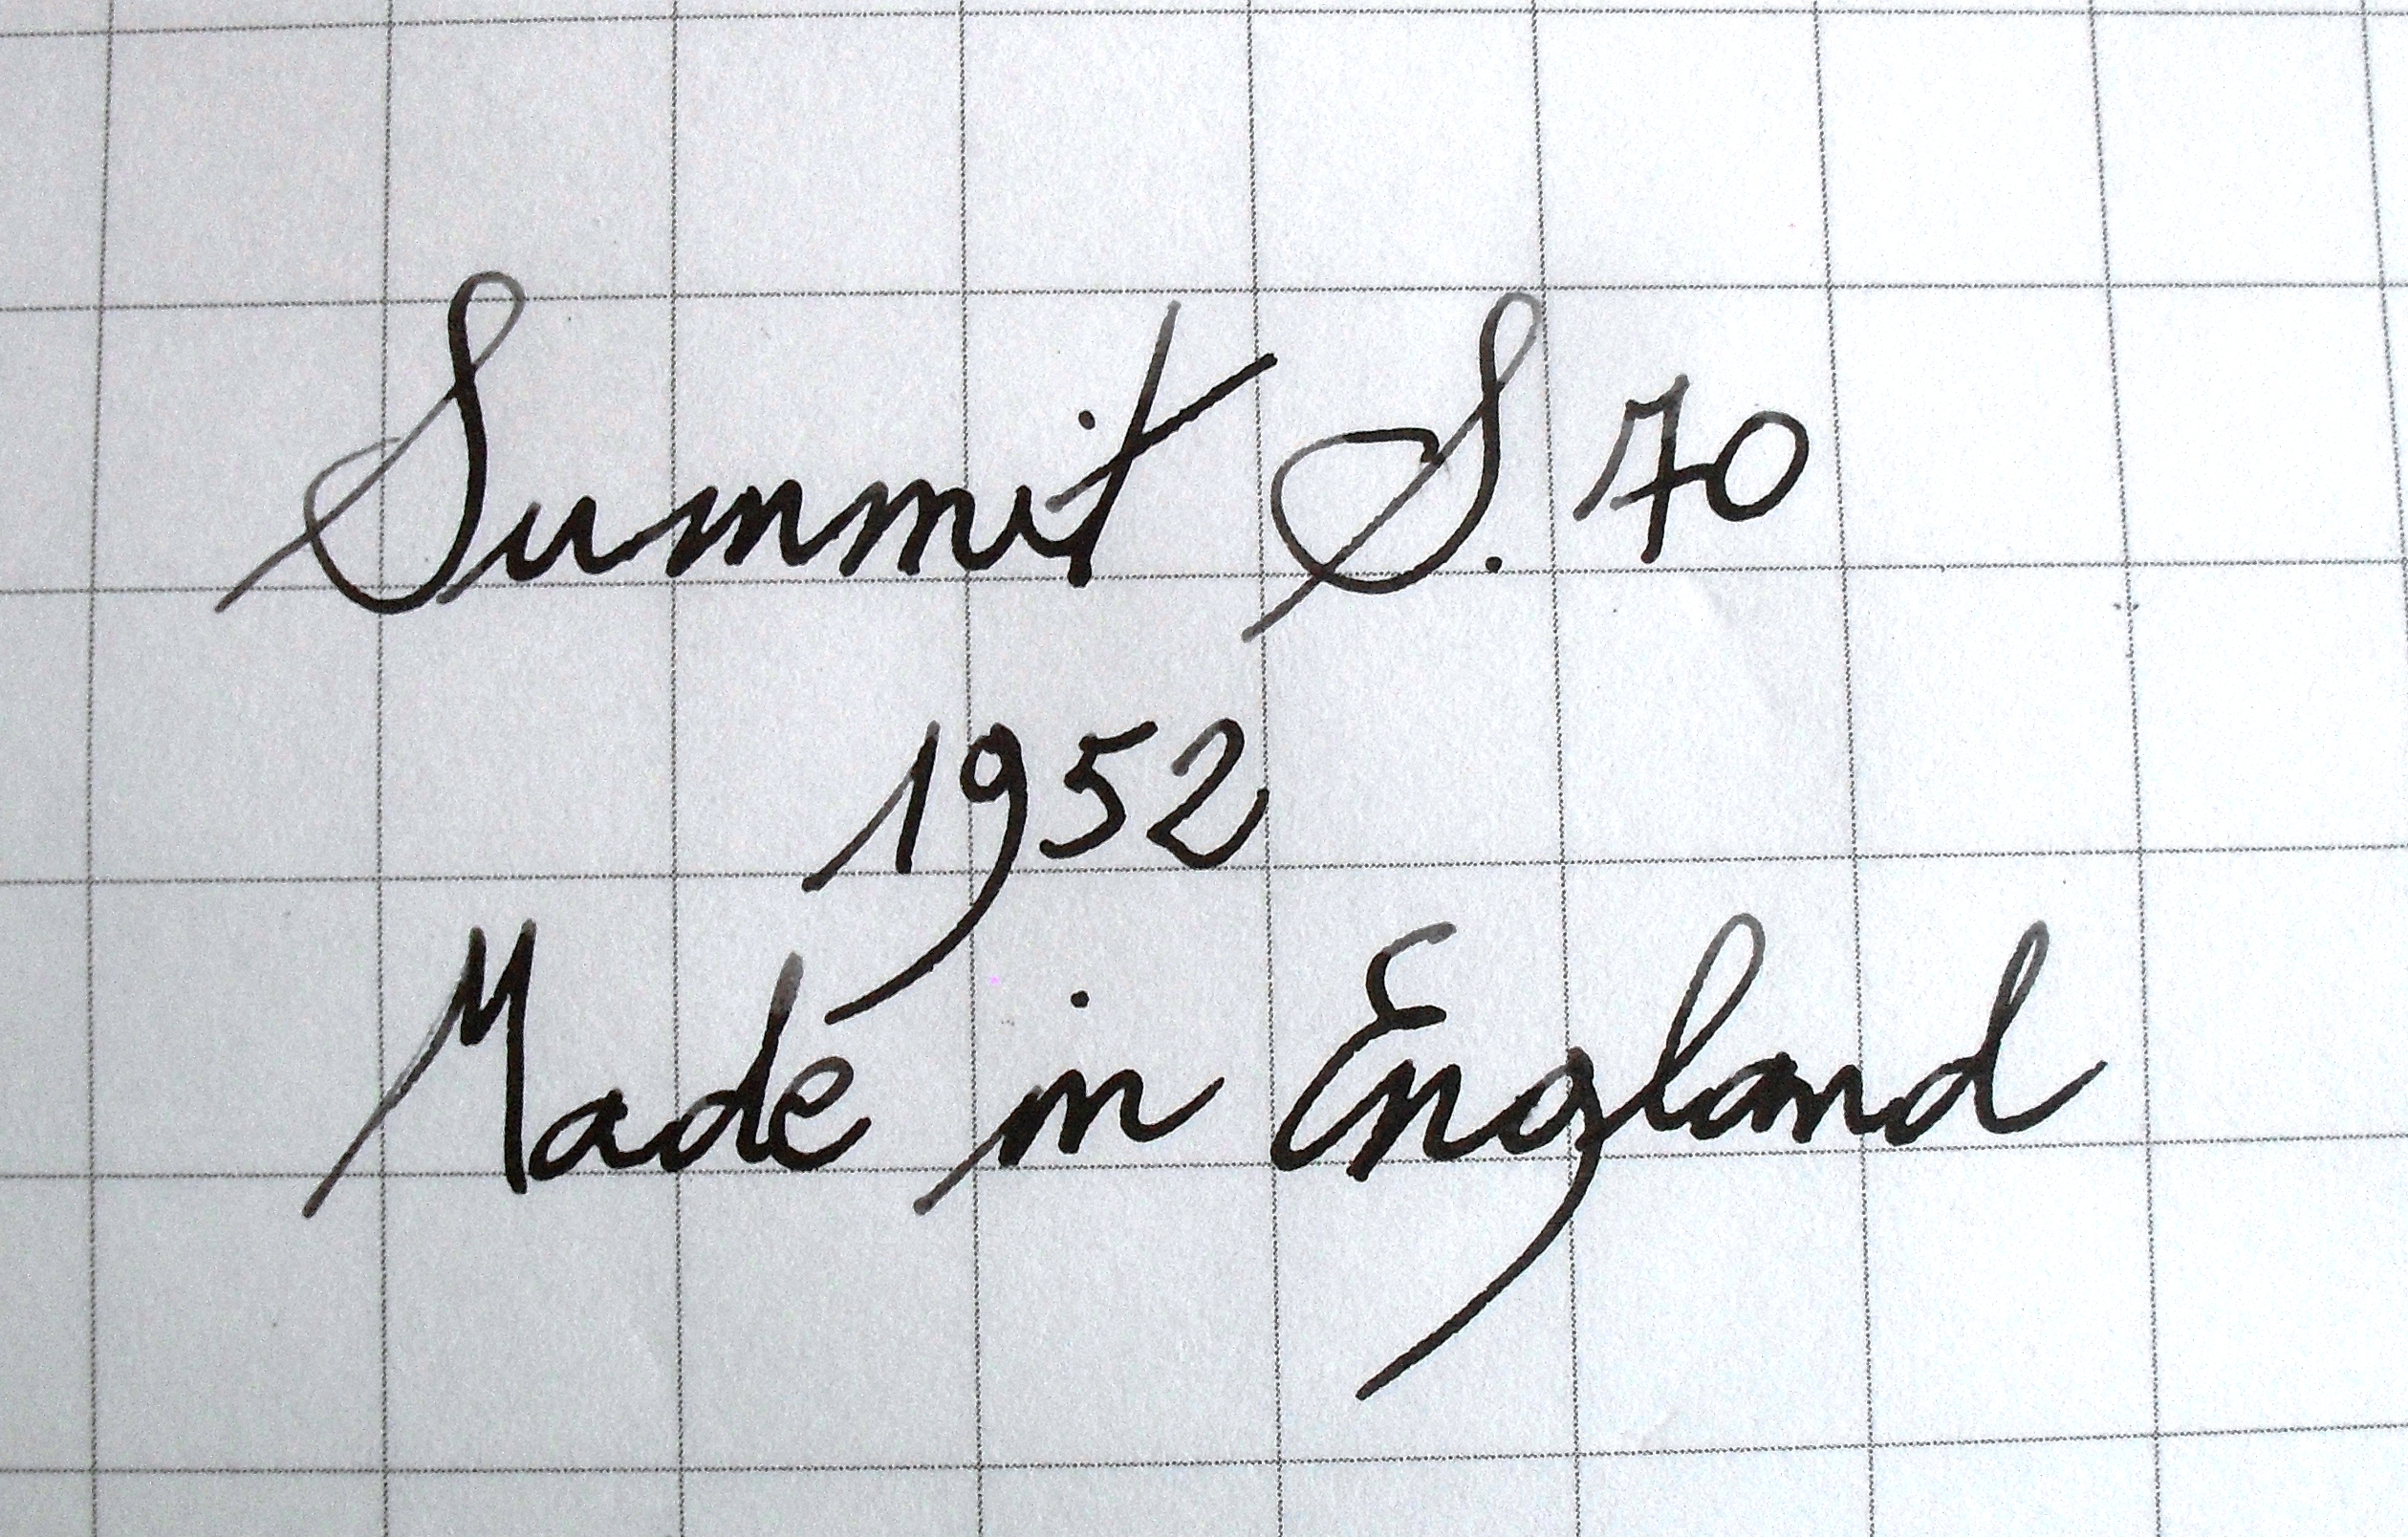 Summit S.70
1952
Made in England